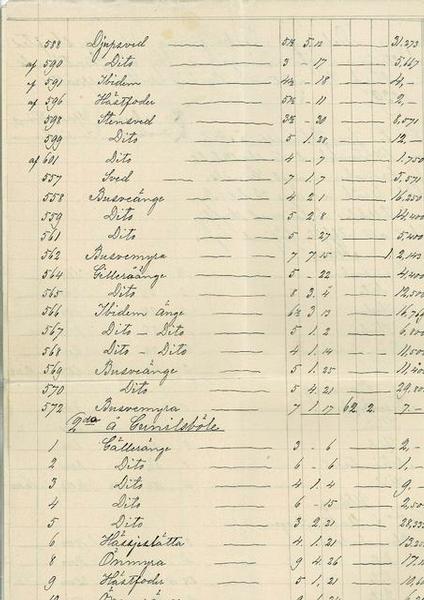 588 Djupsved 5½ 5.12 31.273
af 590 Dito 3 - 17 5.667
af 591 Ibidem 4½ - 18 4,-
af 596 Hästfoder 5½ - 11 2,-
598 Stensved 3½ - 20 8.571
599 Dito 5 1.28 12,-
af 601 Dito 4 - 7 1.750
557 Sved 7 1.7 5.571
558 Busveänge 4 2.1 16.250
559 Dito 5 2.8 14,400
561 Dito 5 - 27 5,400
562 Busvemyra 7 7.15 1 2.143
564 Gilleräänge 5 - 22 4,400
565 Dito 8 3.4 12,500
566 Ibidem änge 6½ 3.13
567 Dito - Dito 5 1.2
568 Dito - Dito 4 1.14 11,500
569 Busveänge 5 1.25 11,400
570 Dito 5 4.21 29,80
572 Busvemyra 7 1.17 62 2. 7.-
2da å Gunilsböle
1 Gälleränge 3 - 6 2,-
2 Dito 6 - 6 1,-
3 Dito 4 1.4 9,-
4 Dito 6 - 15 2,50
5 Dito 3 2.21
6 4 1.21 13,25
8 Önmyra 9 4.26
9 Hästfoder 5 1.21